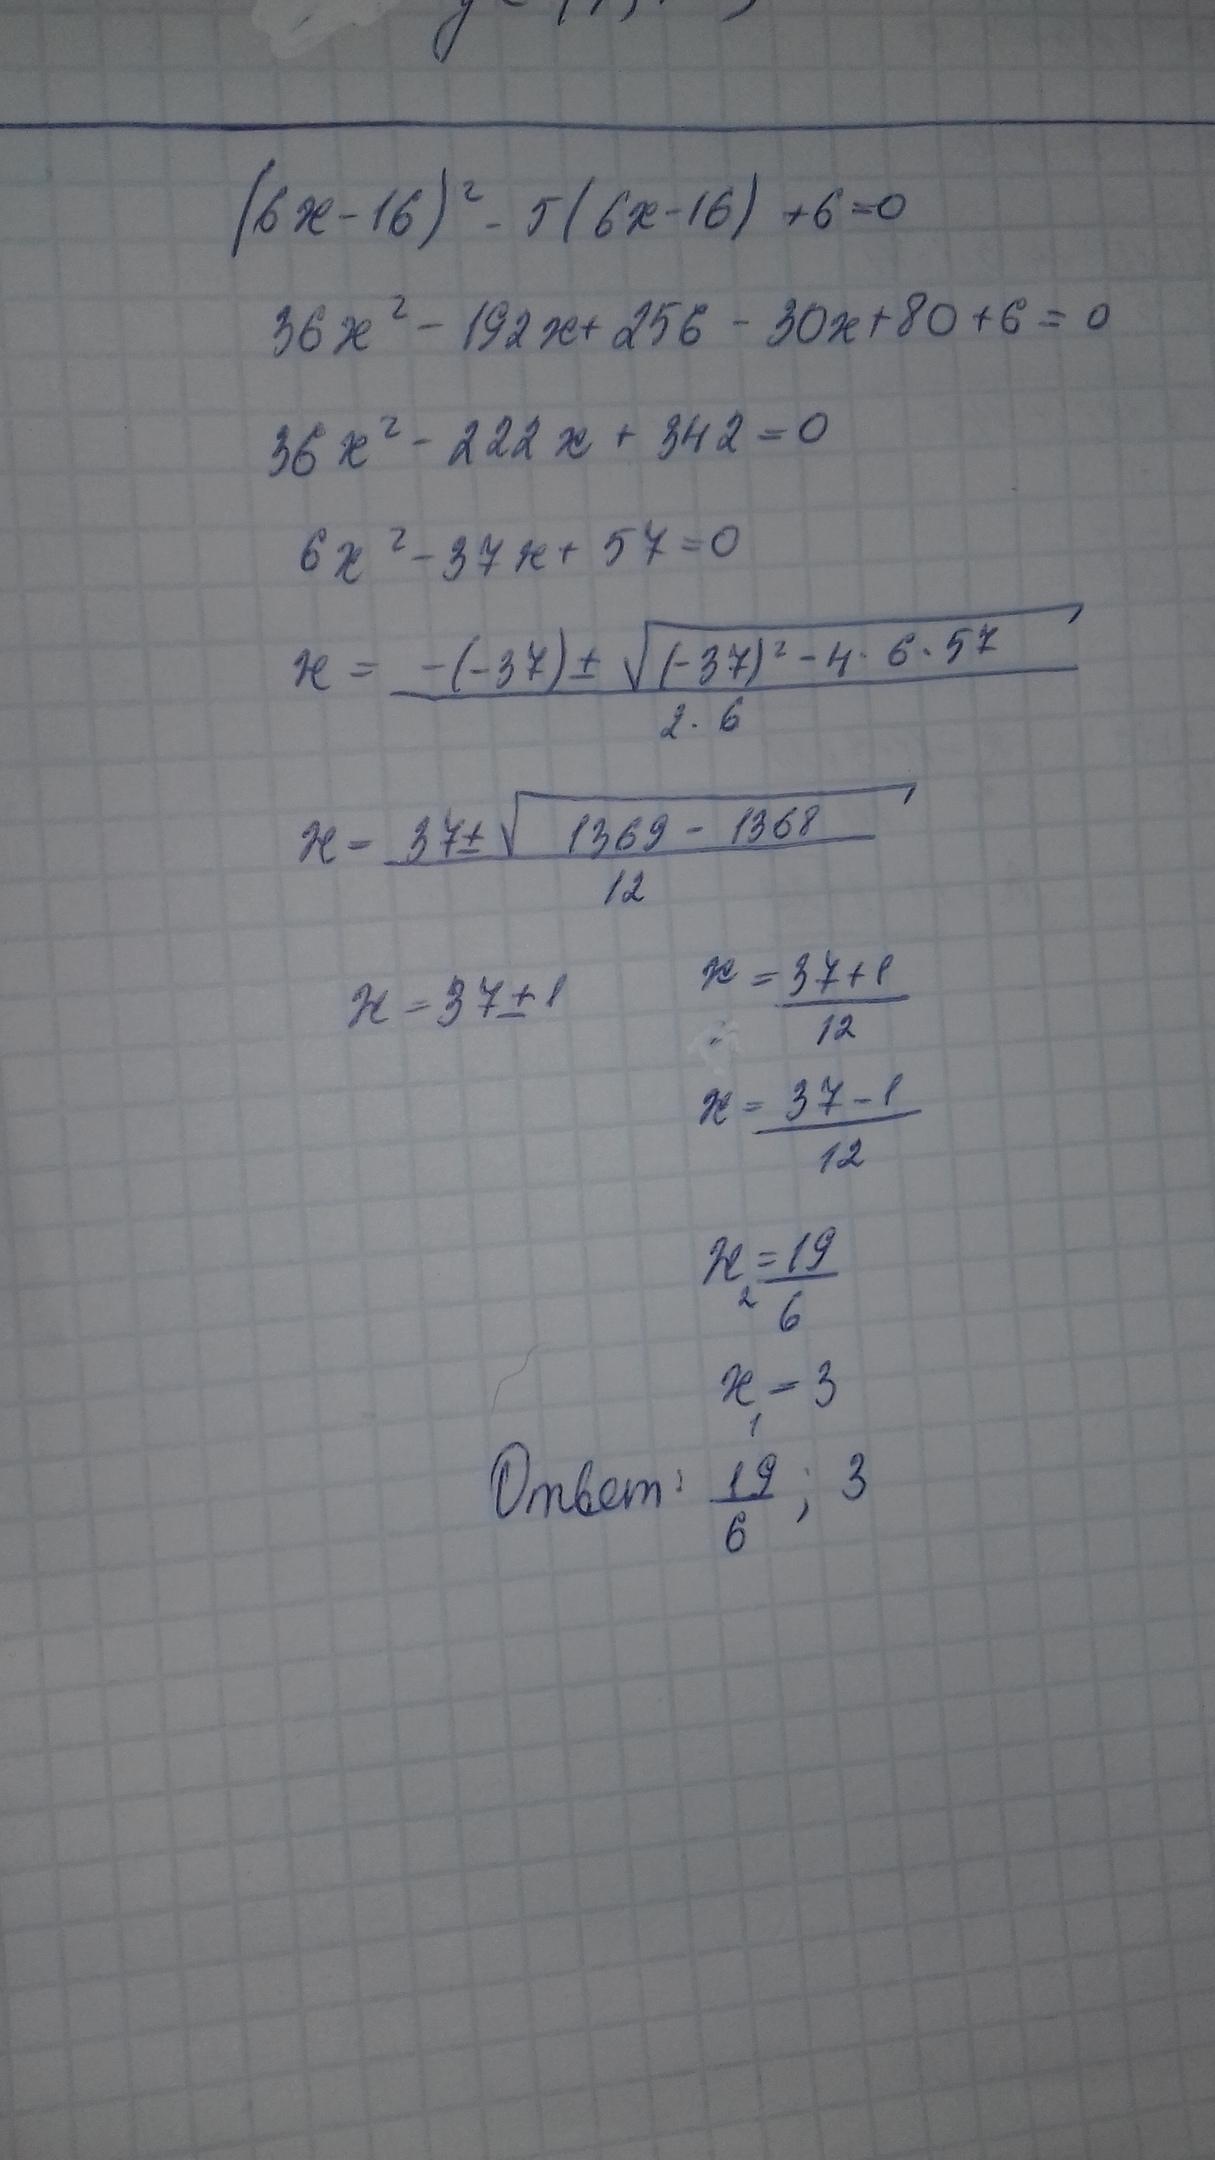 (6x-16)² - 5(6x-16) +6=0
36x² - 192x+ 256 - 30x+80+6=0
36x² - 222x + 342=0
6x² - 37x+ 57=0
x = -(-37)± √(-37)² - 4 · 6 · 57
2 · 6
x = 37± √1369 - 1368
12
x = 37±1
x = 37+1
12
x = 37-1
12
x₂ = 19
6
x₁ = 3
Ответ: 19/6 ; 3